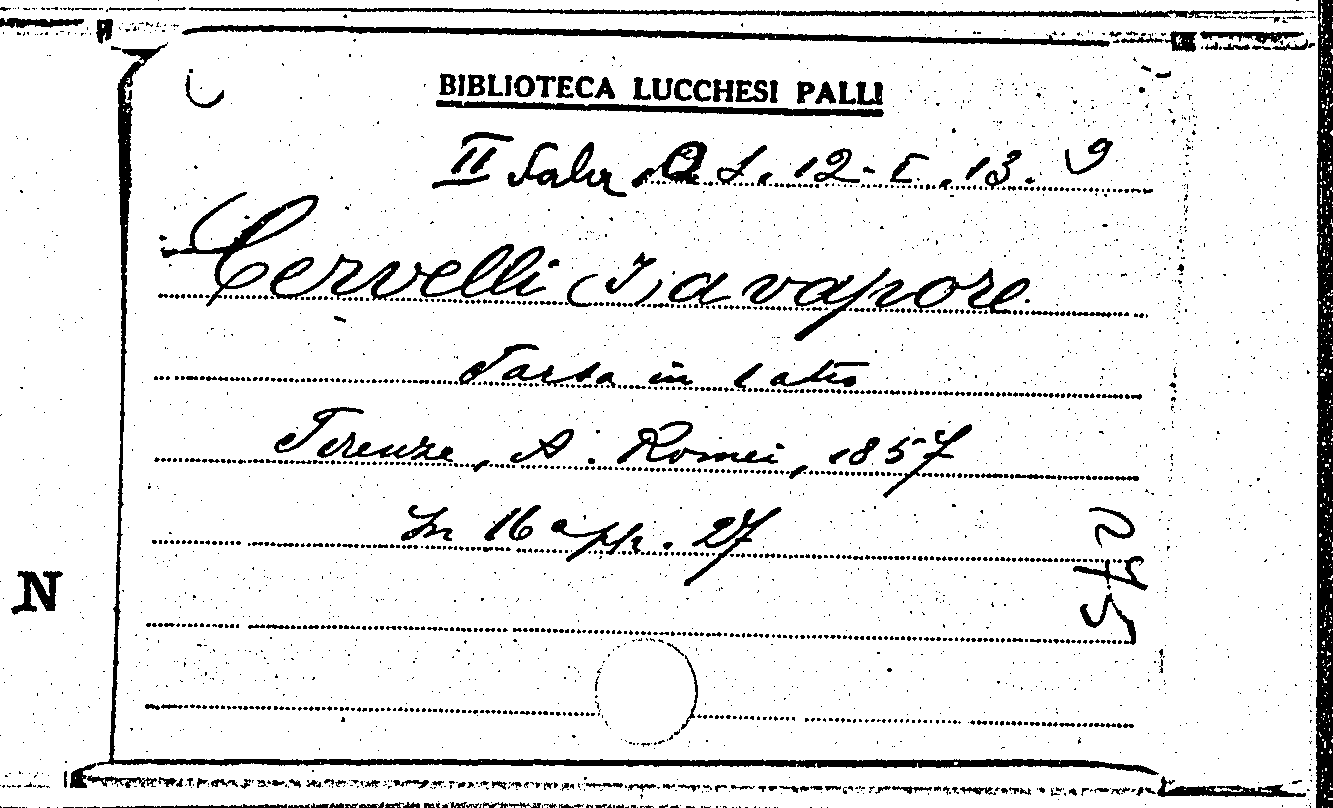 BIBLIOTECA LUCCHESI PALLI
II Sala 12-I.13. 9
Cervelli (I) a vapore
Farsa in 1 atto
Firenze, A. Romei, 1857
In 16° pp. 27
N